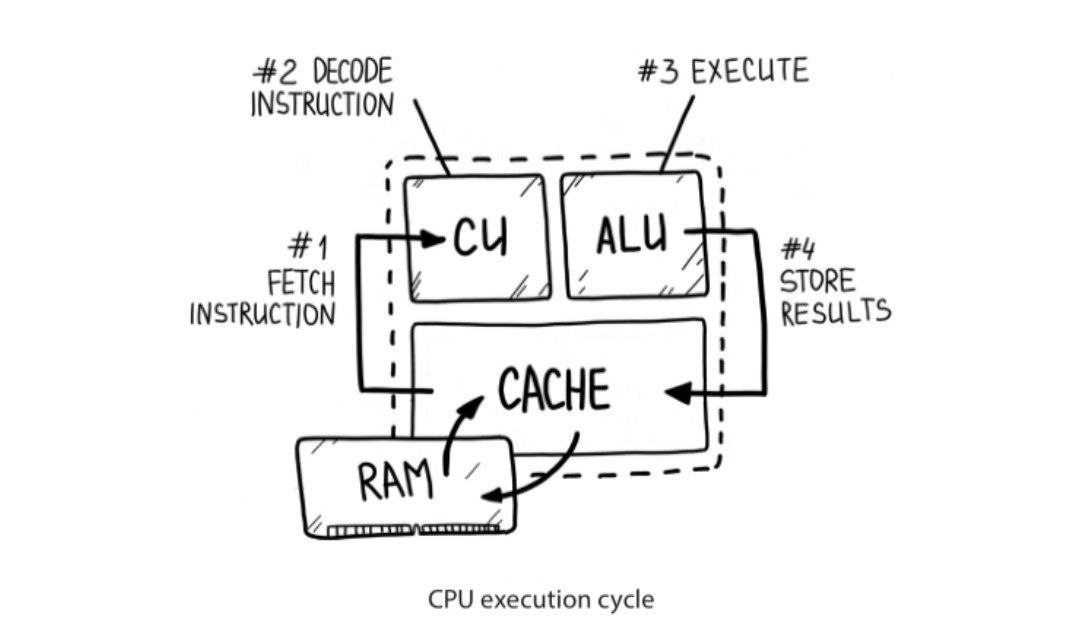 #2 DECODE
INSTRUCTION
#3 EXECUTE
CU
ALU
#1
FETCH
INSTRUCTION
#4
STORE
RESULTS
CACHE
RAM
CPU execution cycle